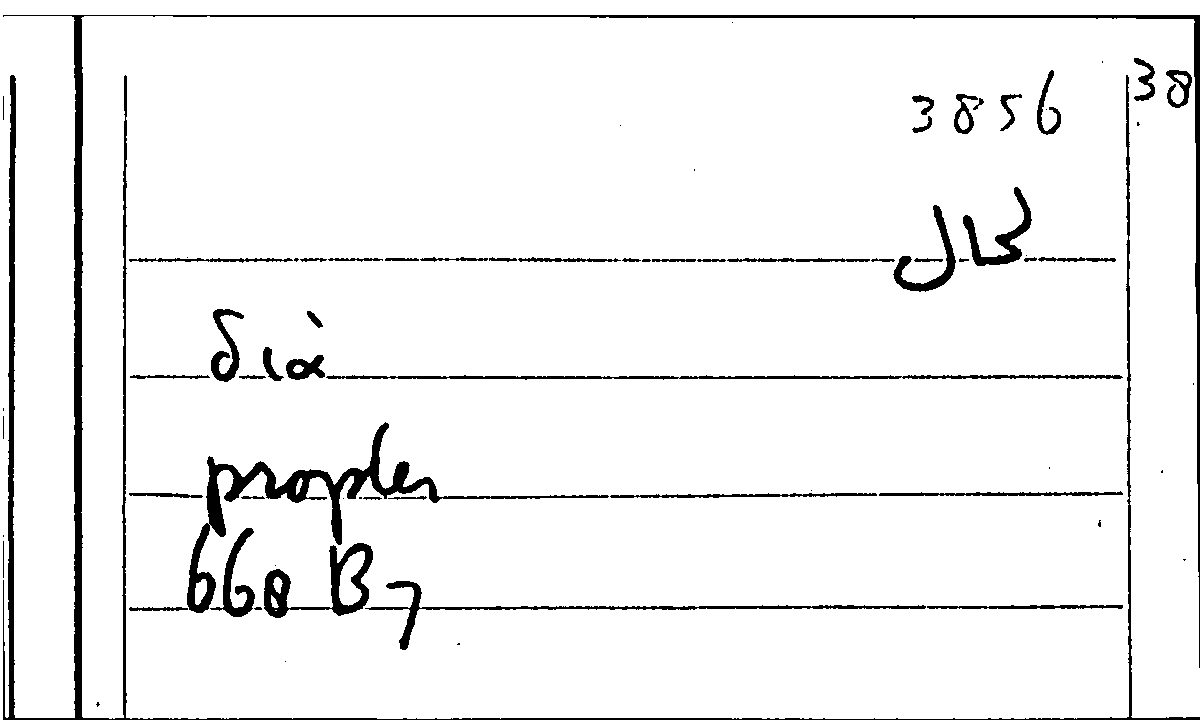 38
3856
JB
διὰ
propter
668 B7